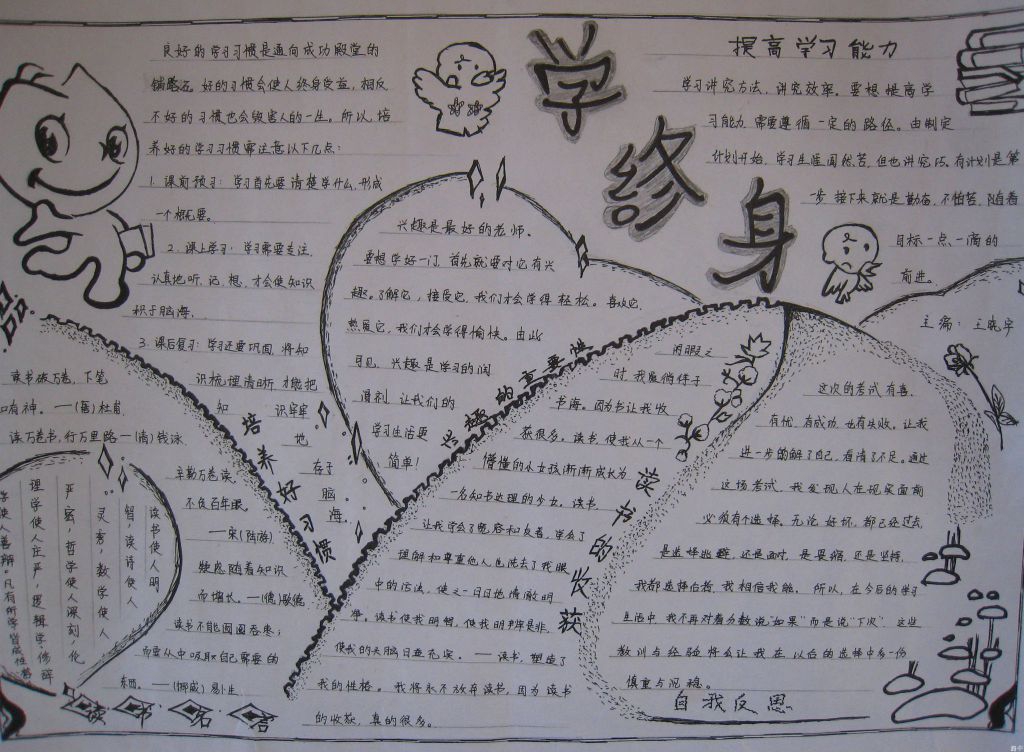 学
终
身
良好的学习习惯是通向成功殿堂的
铺路石。好的习惯会使人终身受益,相反
不好的习惯也会毁害人的一生。所以,培
养好的学习习惯需注意以下几点:
1.课前预习:学习首先要清楚学什么,形成
一个概要。
2.课上学习:学习需要专注,
认真地听、记、想,才会使知识
积于脑海。
3.课后复习:学习还要巩固,将知
识梳理清晰才能把
知识牢牢
地
存于
脑
海。
培养好习惯
提高学习能力
学习讲究方法,讲究效率。要想提高学
习能力,需要遵循一定的路径。由制定
计划开始,学习生涯固然苦,但也讲究巧,有计划是第一
步,接下来就是勤奋,不怕苦,随着
目标一点一滴的
前进。
主编:王晓宇
兴趣是最好的老师。
要想学好一门,首先就要对它有兴
趣。了解它,接受它,我们才会学得轻松。喜欢它,
热爱它,我们才会学得愉快。由此
可见,兴趣是学习的润
滑剂,让我们的
学习生活更
简单!
兴趣的重要性
闲暇之
时,我爱徜徉于
书海。因为书让我收
获很多。读书,使我从一个
懵懂的小女孩渐渐成长为
一名知书达理的少女。读书,
让我学会了宽容和友善,学会了
理解和尊重他人也洗去了我眼
中的污浊,使之一日日地清澈明
净。读书使我明智,使我明辨是非,
使我的头脑日益充实。——读书,塑造了
我的性格。我将永不放弃读书,因为读书
的收获,真的很多。
读书的收获
这次的考试有喜,
有忧,有成功,也有失败。让我
进一步的解了自己,看清了不足。通过
这场考试,我发现人在现实面前
必须有个选择。无论好坏,都已经过去,
是选择逃避,还是面对,是畏缩,还是坚持,
我都选择后者,我相信我能。所以,在今后的学习
生活中,我不再对着分数说“如果”而是说“下次”,这些
教训与经验将会让我在以后的选择中多一份
慎重与沉稳。
自我反思
读书破万卷,下笔
如有神。——(唐)杜甫
读万卷书,行万里路—(清)钱泳
辛勤万卷读,
不负百年眼。
——宋(陆游)
疑惑随着知识
而增长。—(德)歌德
读书不能囫囵吞枣,
而要从中吸取自己需要的
东西。——(挪威)易卜生
读书使人明
智,读诗使人
灵秀,数学使人
严密,哲学使人深刻,伦
理学使人庄严,逻辑学、修辞
学使人善辩。凡有所学皆成性格。
读书名言